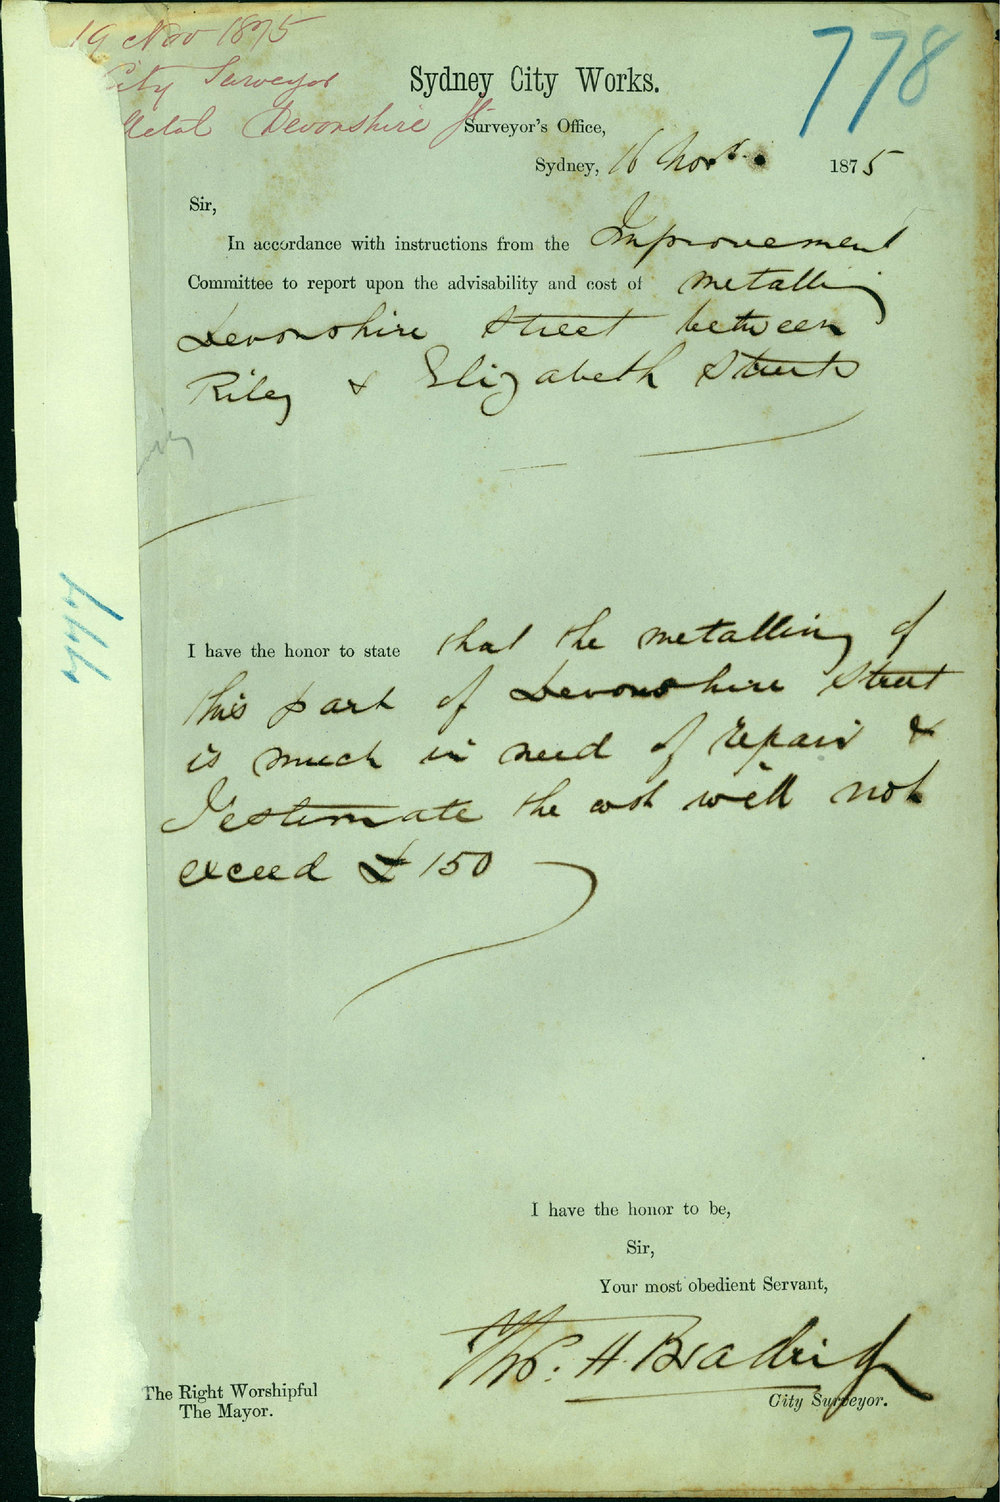 19 Nov 1875
City Surveyor
Metal Devonshire St
778
Sydney City Works.
Surveyor's Office,
Sydney, 16 Novr. 1875
Sir,
In accordance with instructions from the Improvement
Committee to report upon the advisability and cost of metalling
Devonshire Street between
Riley & Elizabeth Streets
I have the honor to state that the metalling of
this part of Devonshire Street
is much in need of repair &
I estimate the cost will not
exceed £150
I have the honor to be,
Sir,
Your most obedient Servant,
Thos. H. Bradridg
City Surveyor.
The Right Worshipful
The Mayor.